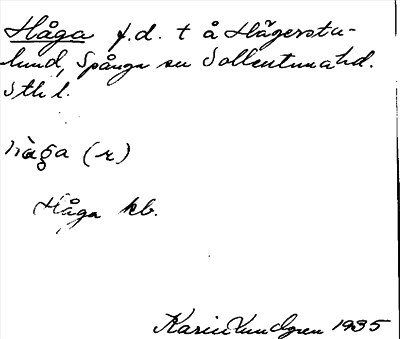 Håga f.d. t å Hägerstalund, Spånga sn Sollentuna hd.
Sthl.
håga (r)
Håga kb.
Karin Lundgren 1935